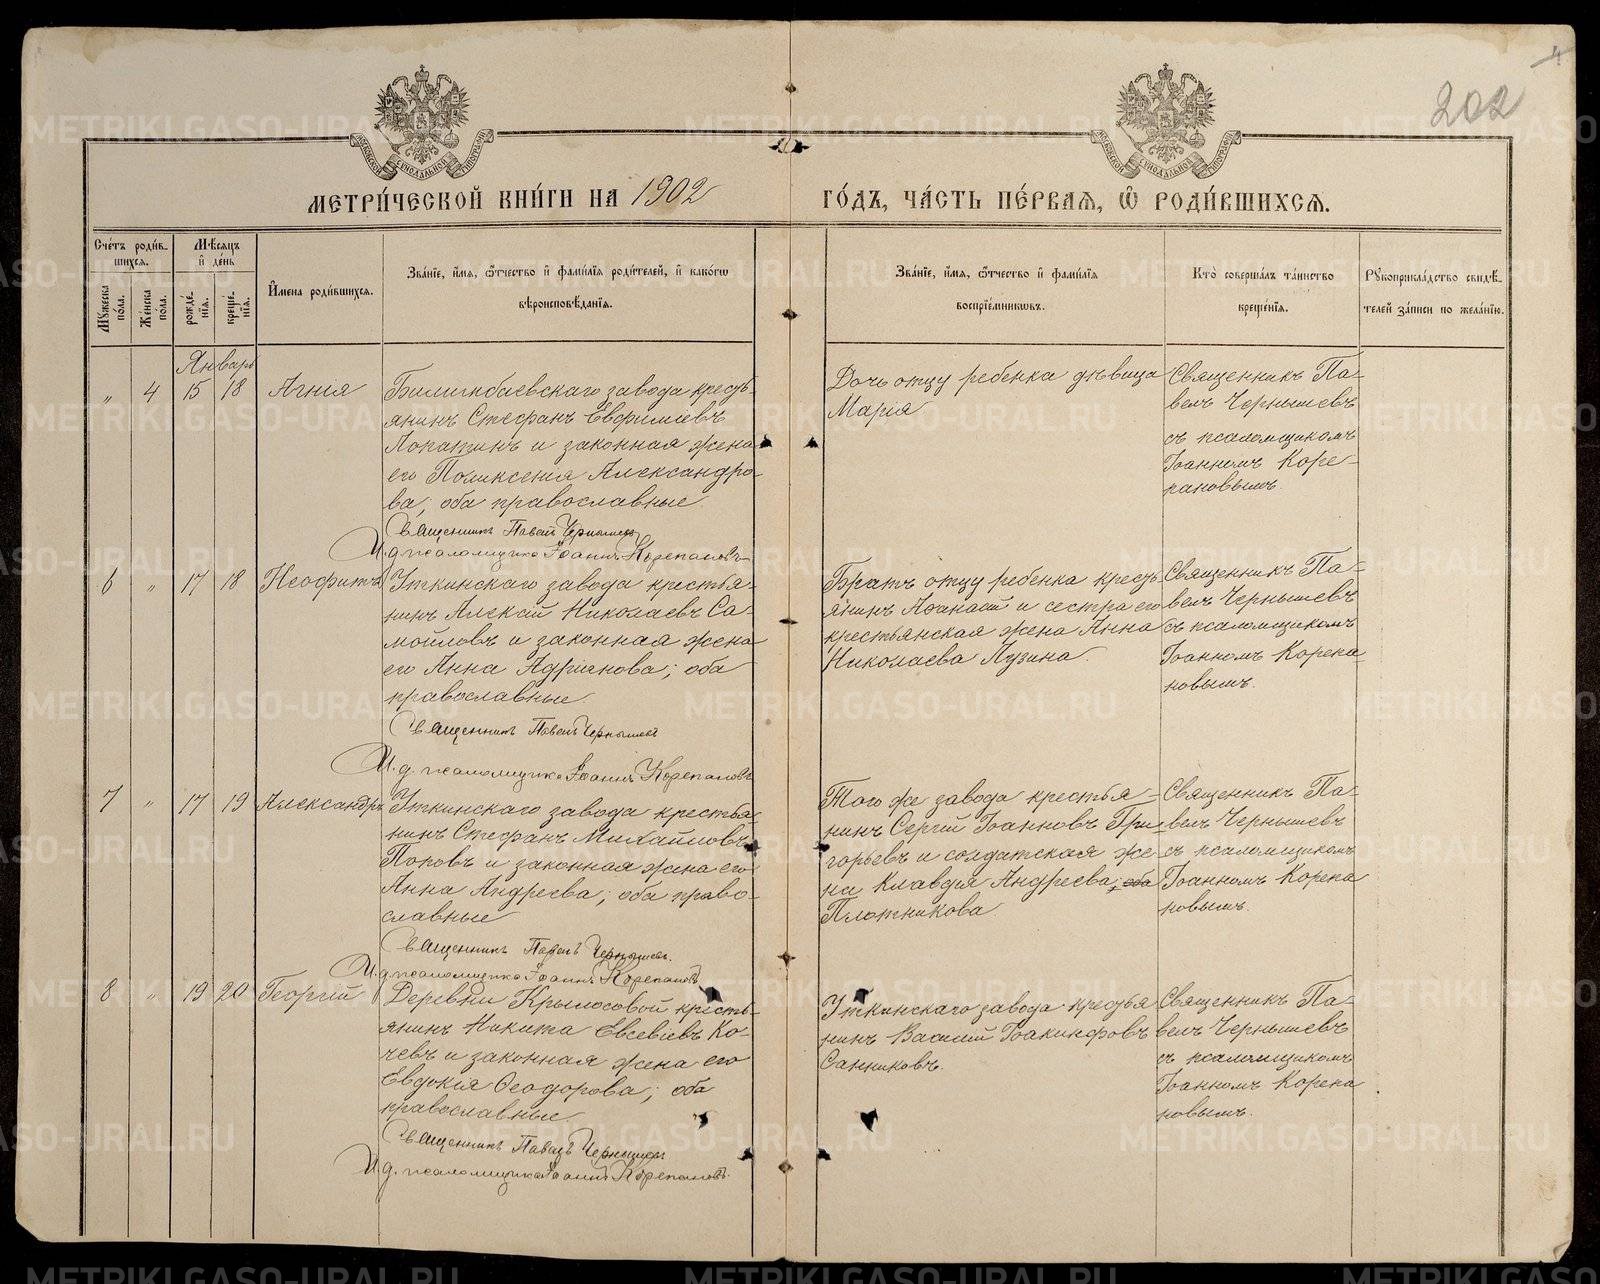 4
202
МОСКОВСКОЙ СѴНОДАЛЬНОЙ ТИПОГРАФІИ
МОСКОВСКОЙ СѴНОДАЛЬНОЙ ТИПОГРАФІИ
МЕТРИ́ЧЕСКОЙ КНИ́ГИ НА 1902 ГО́ДЪ, ЧА́СТЬ ПЕ́РВАѦ, Ѽ РОДИ́ВШИХСѦ.
Сче́тъ роди́в-
шихсѧ.
Мꙋ́жеска по́ла.
Же́нска по́ла.
Мѣ́сѧцъ
и҆ де́нь
рожде́-
нїѧ.
креще́-
нїѧ.
И҆мена̀ роди́вшихсѧ.
Зва́нїе, и҆́мѧ, ѻ҆́тчество и҆ фами́лїѧ роди́телей, и҆ како́гѡ
вѣроисповѣ́данїѧ.
Зва́нїе, и҆́мѧ, ѻ҆́тчество и҆ фами́лїѧ
воспрїе́мникѡвъ.
Кто̀ соверша́лъ та́инство
креще́нїѧ.
Рꙋкоприкла́дство свидѣ́-
телей за́писи по жела́нїю.
Январь
„ 4 15 18 Агнія
Билимбаевскаго завода кресть-
янинъ Стефанъ Евфиміевъ
Лопатинъ и законная жена
его Поликсенія Александро-
ва; оба православные.
Священникъ Павелъ Чернышевъ
И. д. псаломщика Іоаннъ Корепановъ
Дочь отцу ребенка дѣвица
Марія
Священникъ Па-
велъ Чернышевъ
съ псаломщикомъ
Іоанномъ Коре-
пановымъ.
6 „ 17 18 Неофитъ
Уткинскаго завода крестья-
нинъ Алексій Николаевъ Са-
мойловъ и законная жена
его Анна Адрианова; оба
православные.
Священникъ Павелъ Чернышевъ
И. д. псаломщика Іоаннъ Корепановъ
Братъ отцу ребенка кресть-
янинъ Афанасій и сестра его
крестьянская жена Анна
Николаева Лузина.
Священникъ Па-
велъ Чернышевъ
съ псаломщикомъ
Іоанномъ Корепа
новымъ.
7 „ 17 19 Александръ
Уткинскаго завода крестья-
нинъ Стефанъ Михайловъ
Поповъ и законная жена его
Анна Андреева; оба право-
славные
Священникъ Павелъ Чернышевъ.
И. д. псаломщика Іоаннъ Корепановъ
Того же завода крестья-
нинъ Сергій Іоанновъ Гри-
горьевъ и солдатская же
на Клавдія Андреева; оба
Плотникова
Священникъ Па-
велъ Чернышевъ
съ псаломщикомъ
Іоанномъ Корепа
новымъ.
8 „ 19 20 Георгій
Деревни Крылосовой кресть-
янинъ Никита Евсевіевъ Ко-
чевъ и законная жена его
Евдокія Ѳеодорова; оба
православные.
Священникъ Павелъ Чернышевъ
И. д. псаломщика Іоаннъ Корепановъ.
Уткинскаго завода крестья
нинъ Василій Іоакинфовъ
Санниковъ.
Священникъ Па-
велъ Чернышевъ
съ псаломщикомъ
Іоанномъ Корепа
новымъ.
METRIKI.GASO-URAL.RU